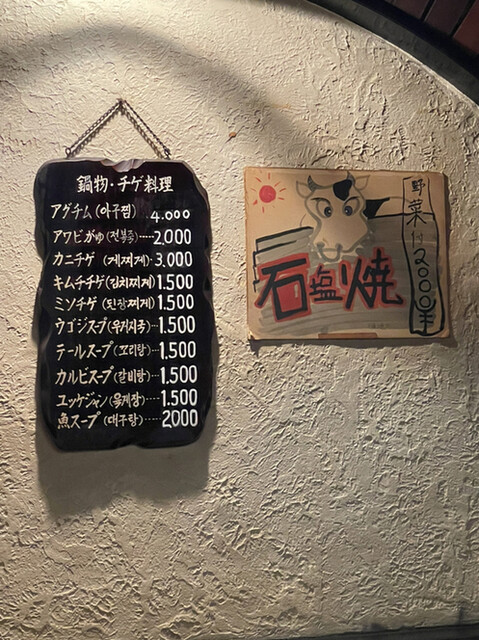 鍋物・チゲ料理
アグチム(아구찜)...4.000
アワビがゆ(전복죽)-----2,000
カニチゲ(게찌게)-3,000
キムチチゲ(김치찌게)1.500
ミソチゲ(된장찌게)1.500
ウゴジスープ(우거지국)1.500
テールスープ(꼬리탕)...1.500
カルビスープ(갈비탕)...1.500
ユッケジャン(육게장)...1.500
魚スープ(대구탕)-----2000
石塩焼
野菜付2000円